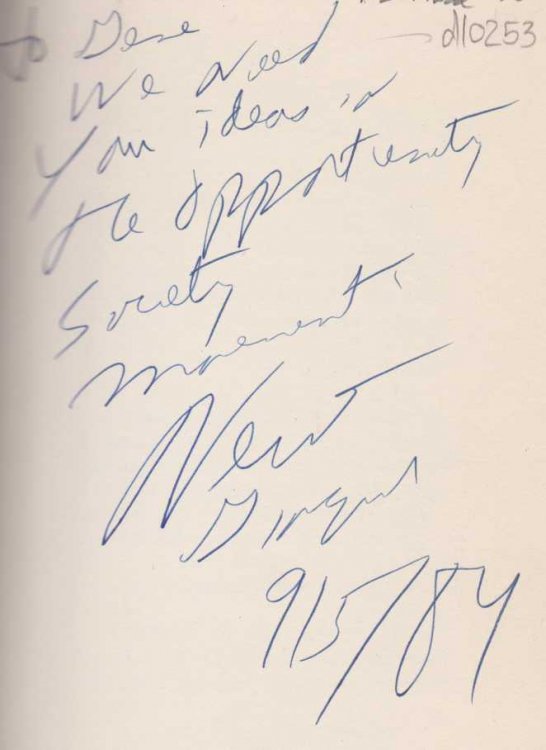 dl0253
To Gene
We Need
Your ideas in
the Opportunity
Society
Movement.
Newt
Gingrich
9/5/84